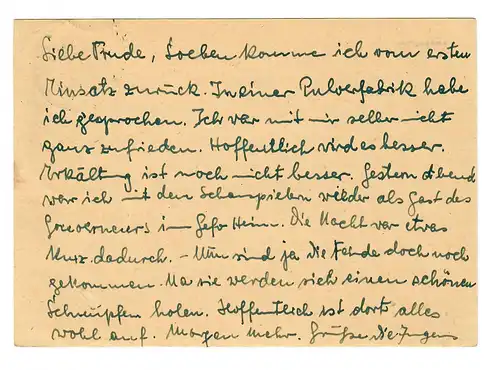 Liebe Trude, Soeben komme ich vom ersten
Einsatz zurück. In einer Pulverfabrik habe
ich gesprochen. Ich war mit mir selber nicht
ganz zufrieden. Hoffentlich wird es besser.
Erkältung ist noch nicht besser. Gestern Abend
war ich mit den Schauspielern wieder als Gast des
Gouverneurs im Heim. Die Nacht war etwas
kurz dadurch. - Nun sind ja die Feinde doch noch
gekommen. Na sie werden sich einen schönen
Schnupfen holen. Hoffentlich ist dort alles
wohl auf. Morgen mehr. Grüße die Jungens